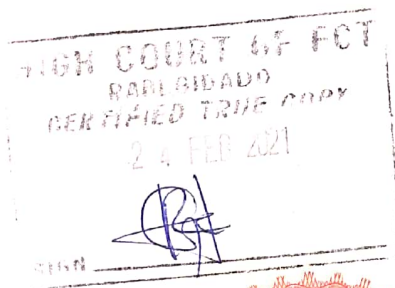 HIGH COURT OF FCT
RABI GIDADO
CERTIFIED TRUE COPY
24 FEB 2021
SIGN